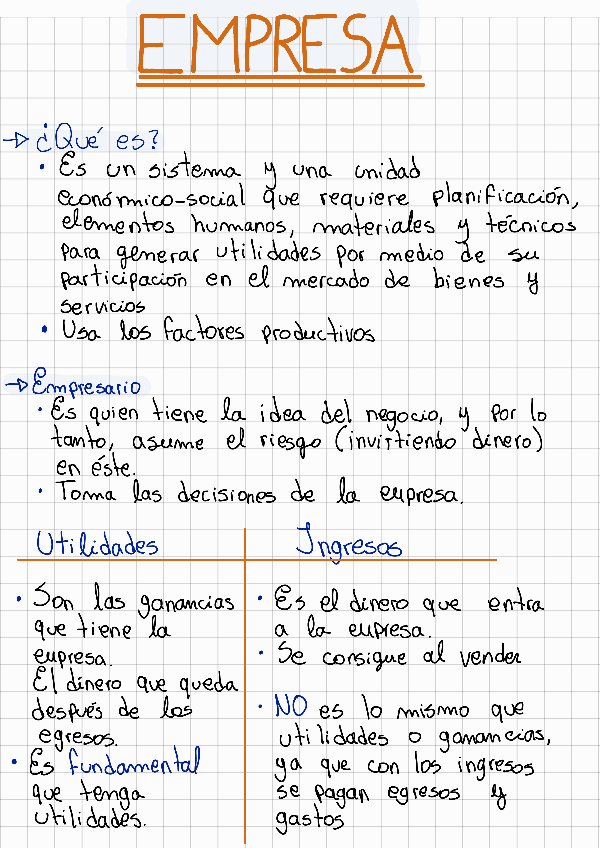 EMPRESA
→ ¿Qué es?
• Es un sistema y una unidad
económico-social que requiere planificación,
elementos humanos, materiales y técnicos
para generar utilidades por medio de su
participación en el mercado de bienes y
servicios
• Usa los factores productivos
→ Empresario
• Es quien tiene la idea del negocio, y por lo
tanto, asume el riesgo (invirtiendo dinero)
en éste.
• Toma las decisiones de la empresa.
Utilidades
• Son las ganancias
que tiene la
empresa.
El dinero que queda
después de los
egresos.
• Es fundamental
que tenga
utilidades.
Ingresos
• Es el dinero que entra
a la empresa.
• Se consigue al vender
• NO es lo mismo que
utilidades o ganancias,
ya que con los ingresos
se pagan egresos y
gastos